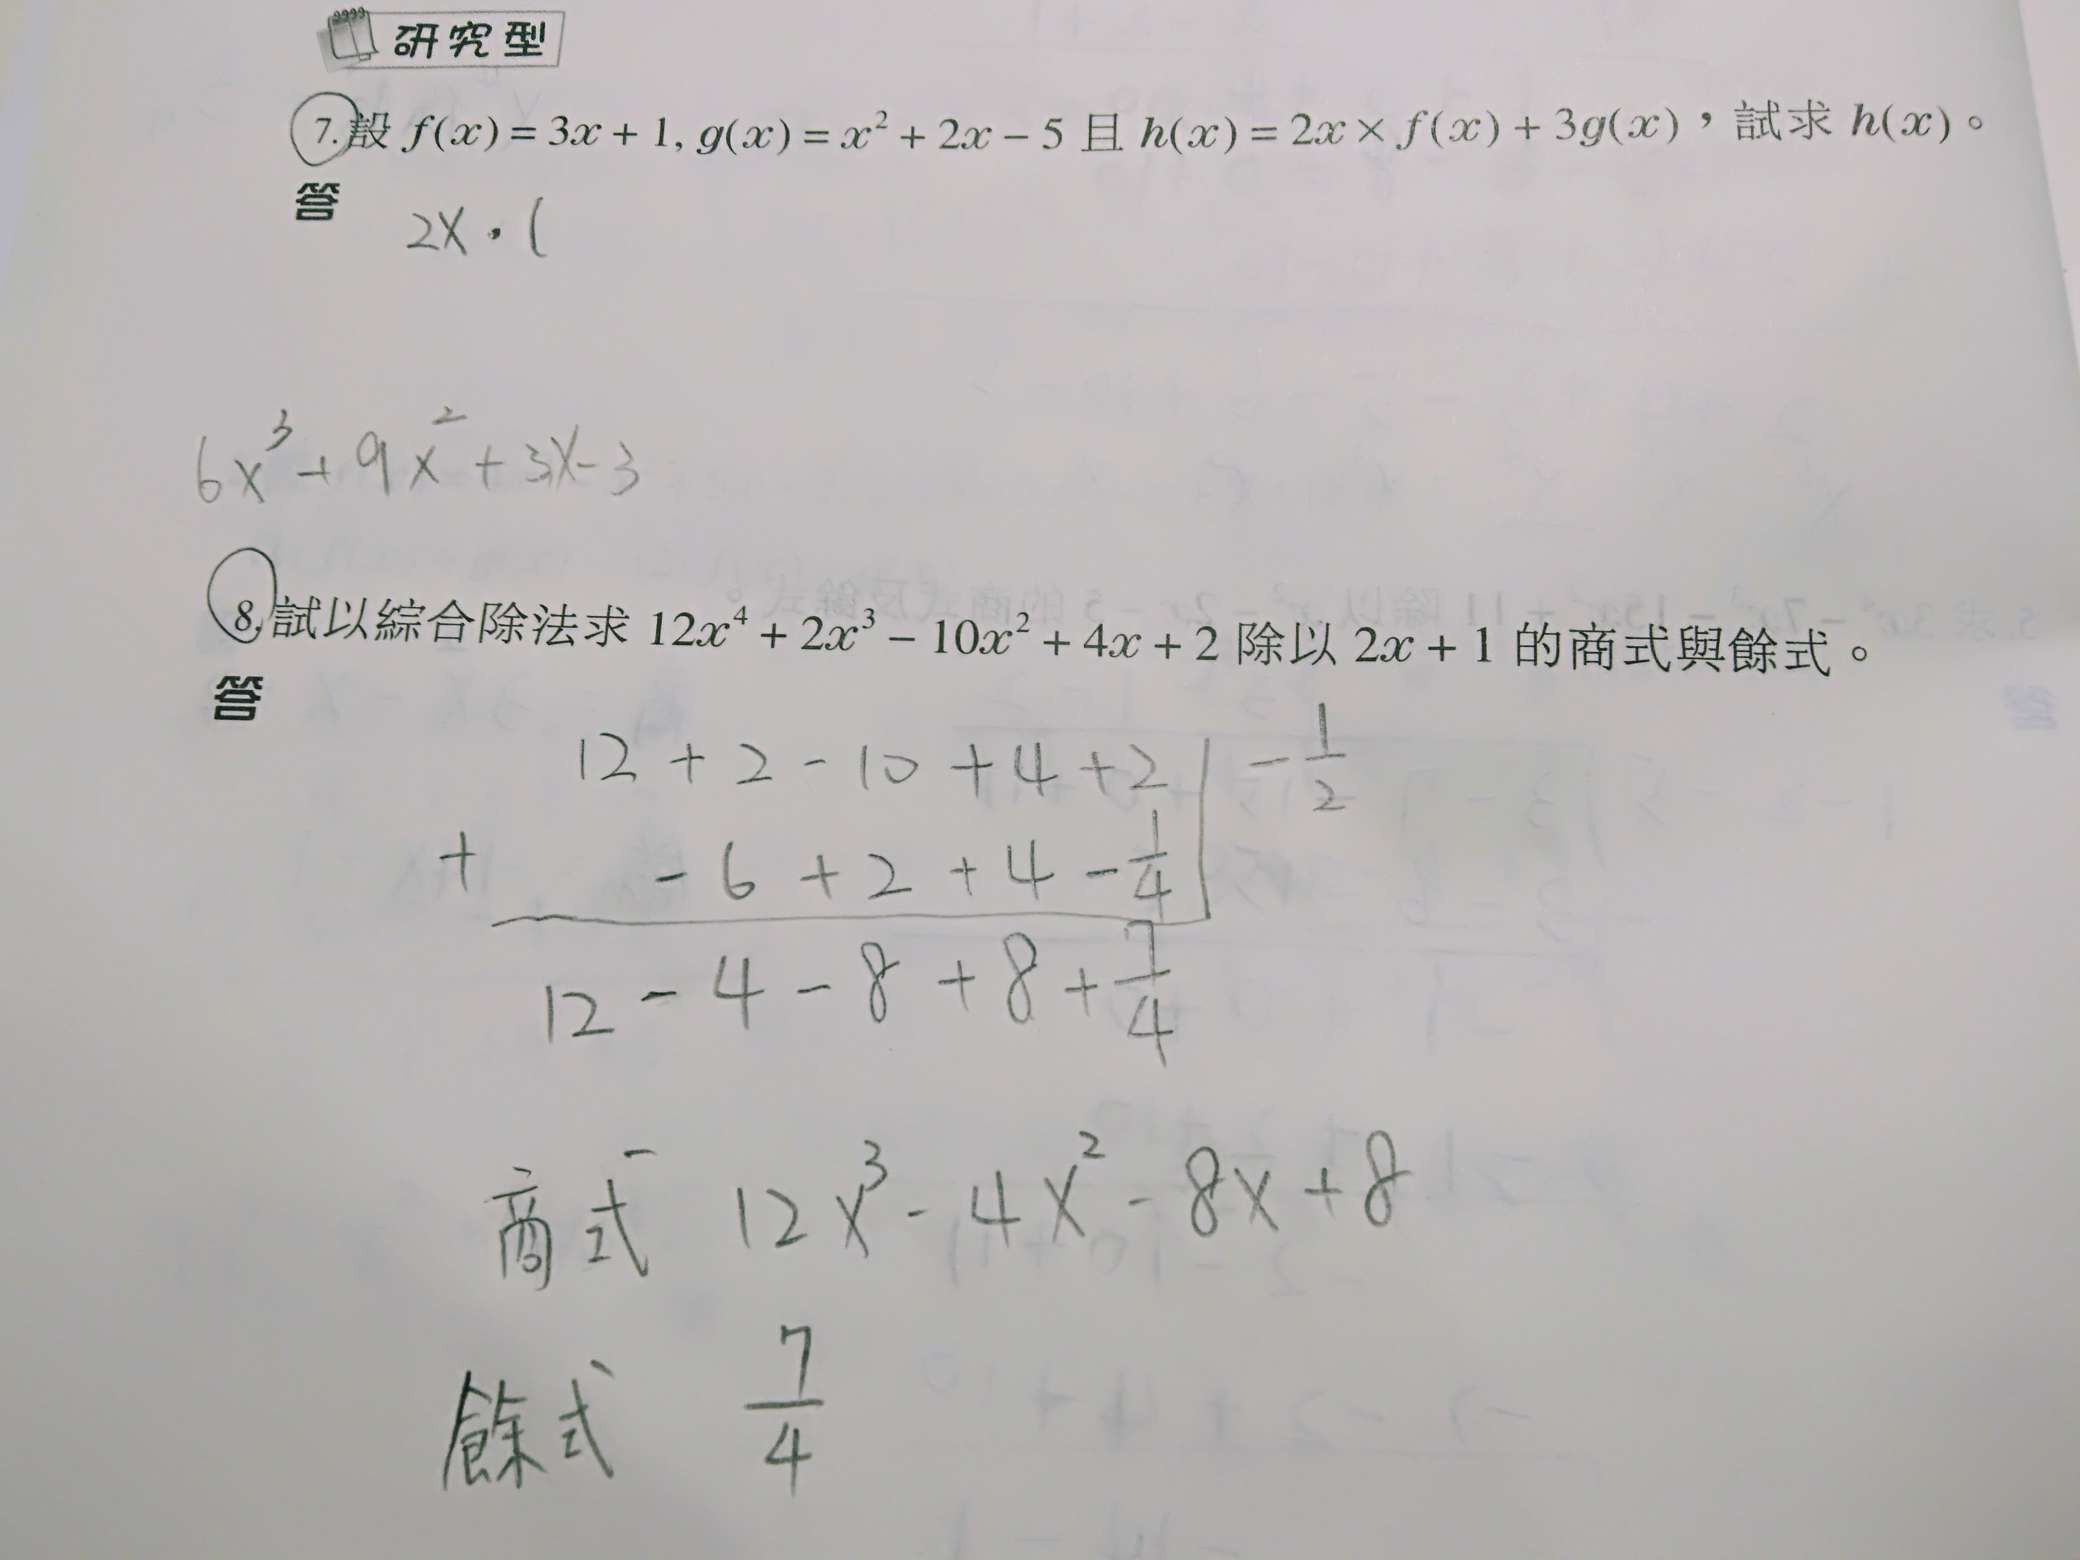 研究型
7. 設 f(x) = 3x + 1, g(x) = x² + 2x − 5 且 h(x) = 2x × f(x) + 3g(x)，試求 h(x)。
答
2x・(
6x³ + 9x² + 3x - 3
8. 試以綜合除法求 12x⁴ + 2x³ − 10x² + 4x + 2 除以 2x + 1 的商式與餘式。
答
12 + 2 - 10 + 4 + 2 | - 1/2
+ - 6 + 2 + 4 - 1/4
12 - 4 - 8 + 8 + 7/4
商式 12x³ - 4x² - 8x + 8
餘式 7/4